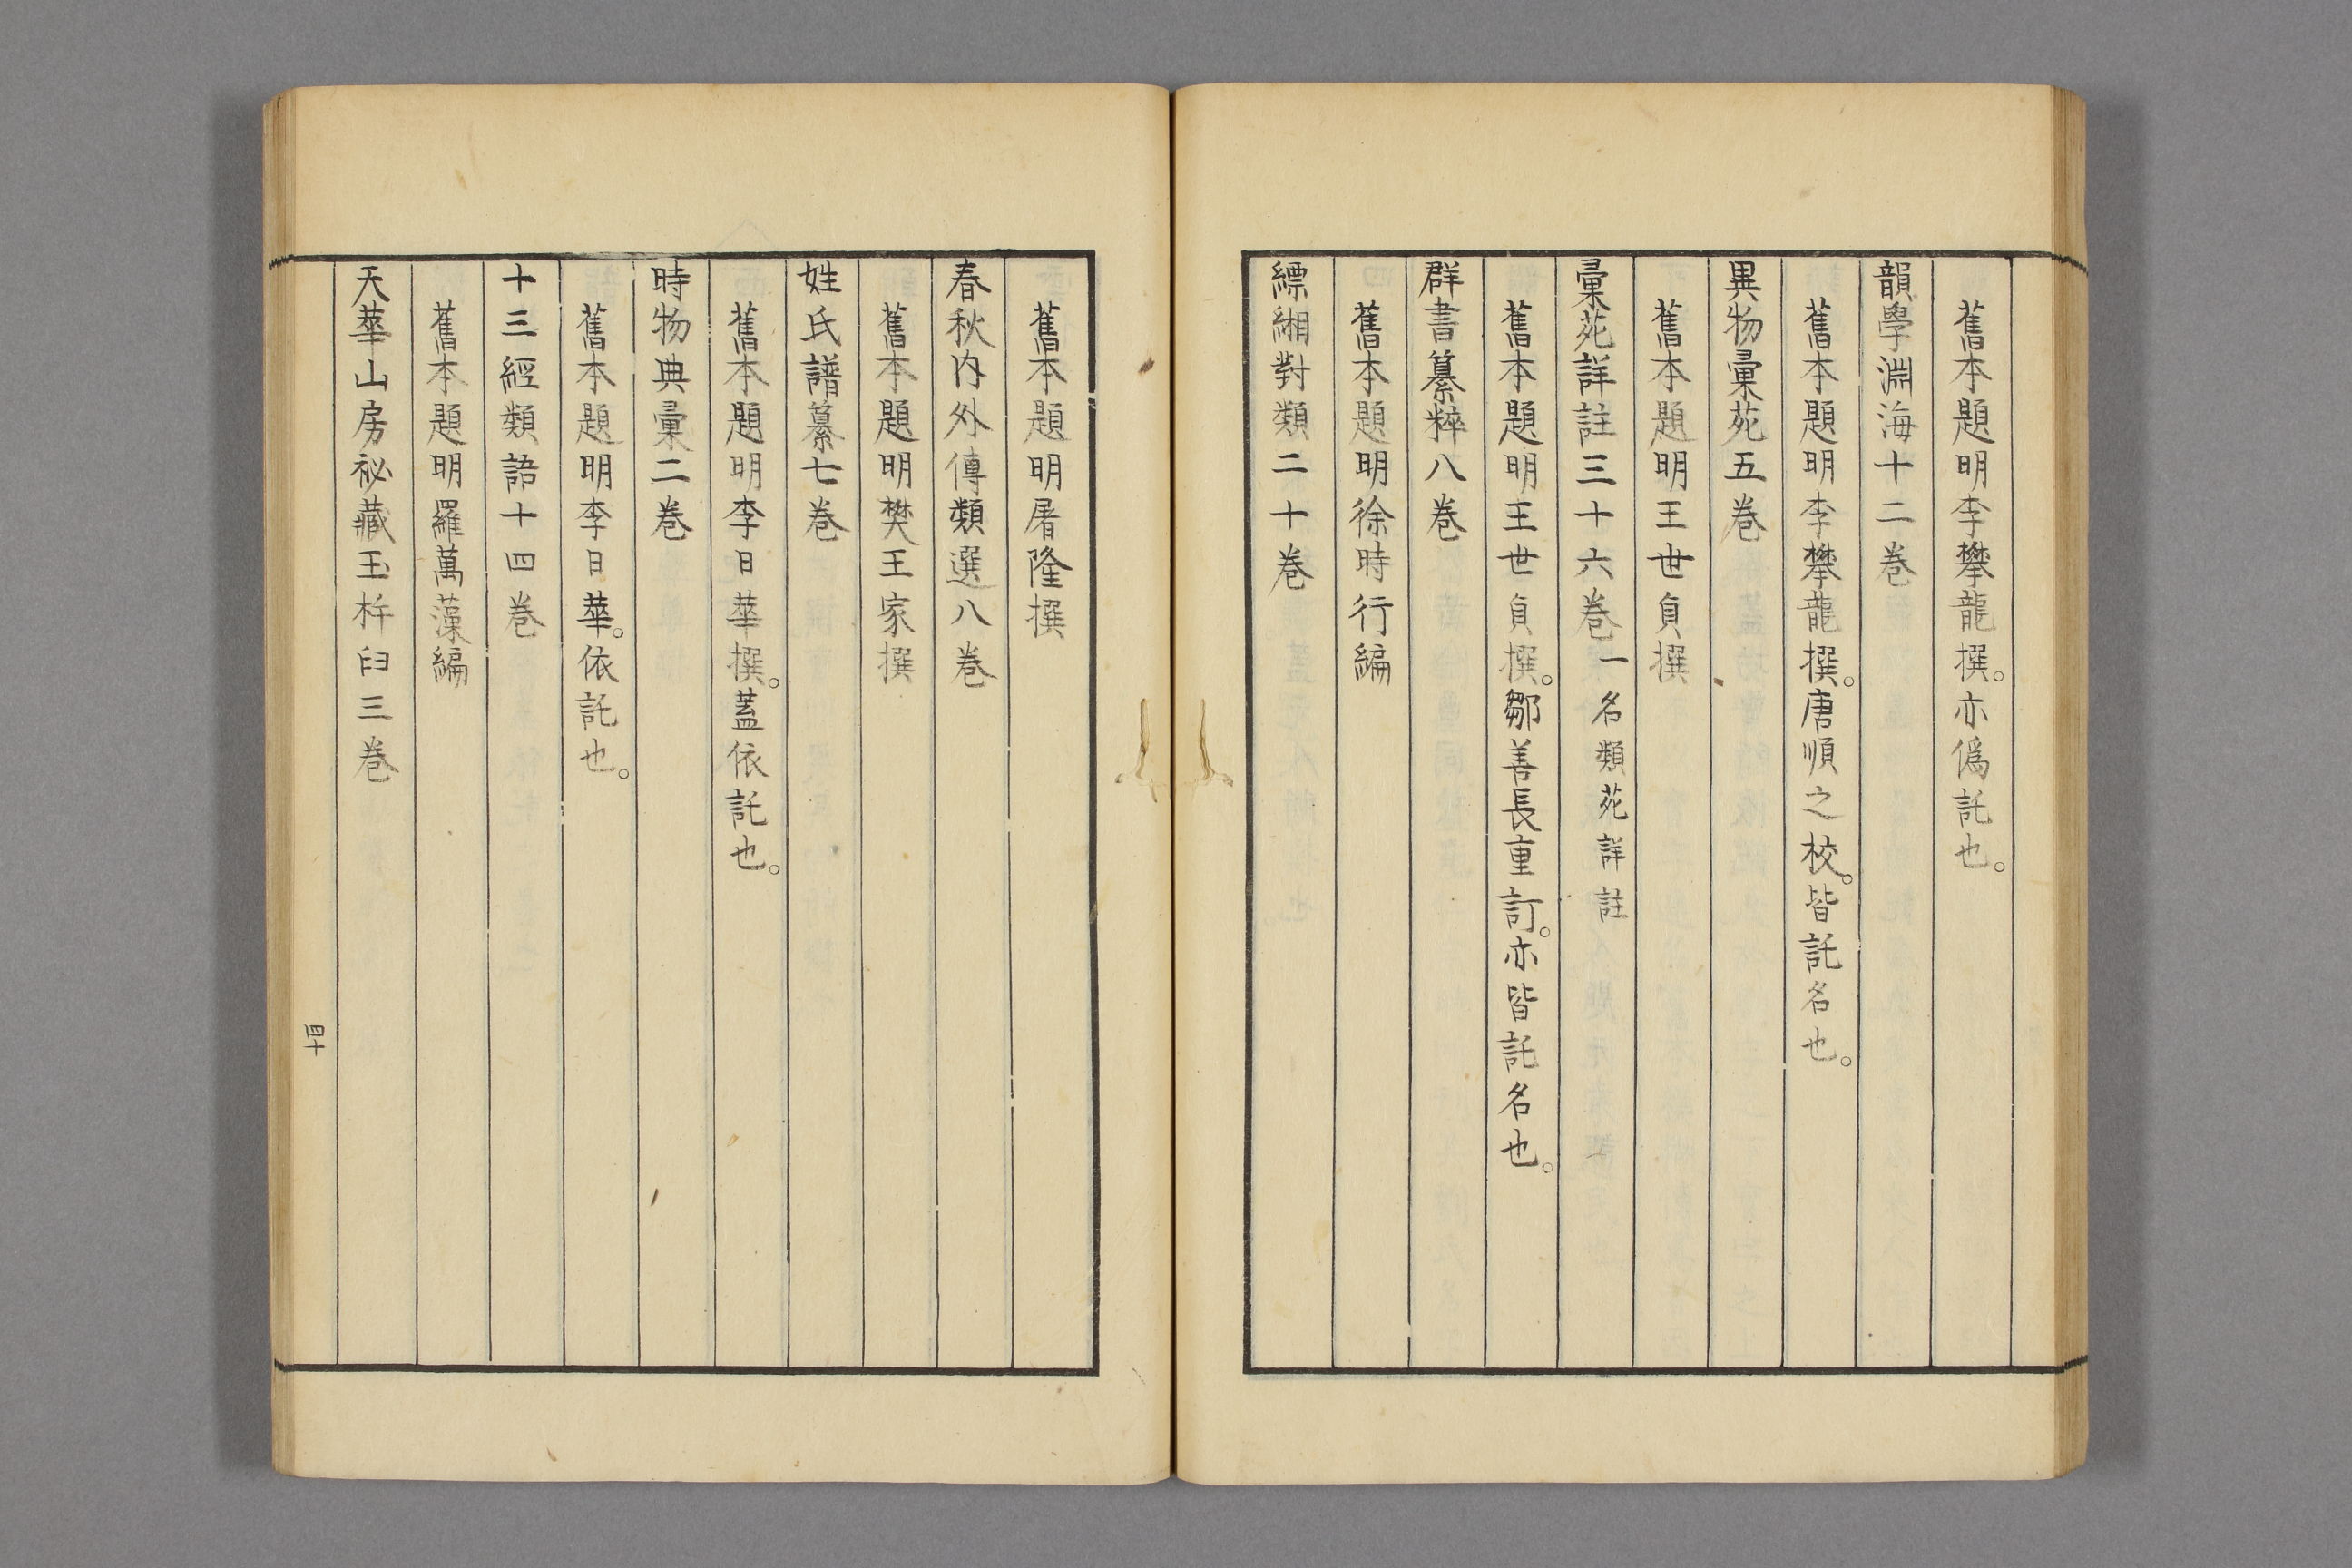 舊本題明李攀龍撰。亦僞託也。
韻學淵海十二卷
舊本題明李攀龍撰。唐順之校。皆託名也。
異物彙苑五卷
舊本題明王世貞撰
彙苑詳註三十六卷一名類苑詳註
舊本題明王世貞撰。鄒善長重訂。亦皆託名也。
群書纂粹八卷
舊本題明徐時行編
縹緗對類二十卷
舊本題明屠隆撰
春秋内外傳類選八卷
舊本題明樊王家撰
姓氏譜纂七卷
舊本題明李日華撰。蓋依託也。
時物典彙二卷
舊本題明李日華。依託也。
十三經類語十四卷
舊本題明羅萬藻編
天華山房祕藏玉杵臼三卷
四十